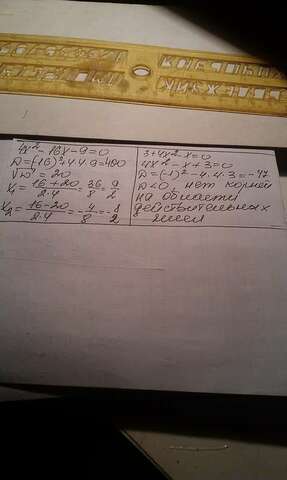 4x² - 16x - 9 = 0
D = (-16)² + 4·4·9 = 400
√D = 20
x₁ = (16+20)/(2·4) = 36/8 = 9/2
x₂ = (16-20)/(2·4) = -4/8 = -1/2
3 + 4x² - x = 0
4x² - x + 3 = 0
D = (-1)² - 4·4·3 = -47
D<0, нет корней
на области
действительных
чисел